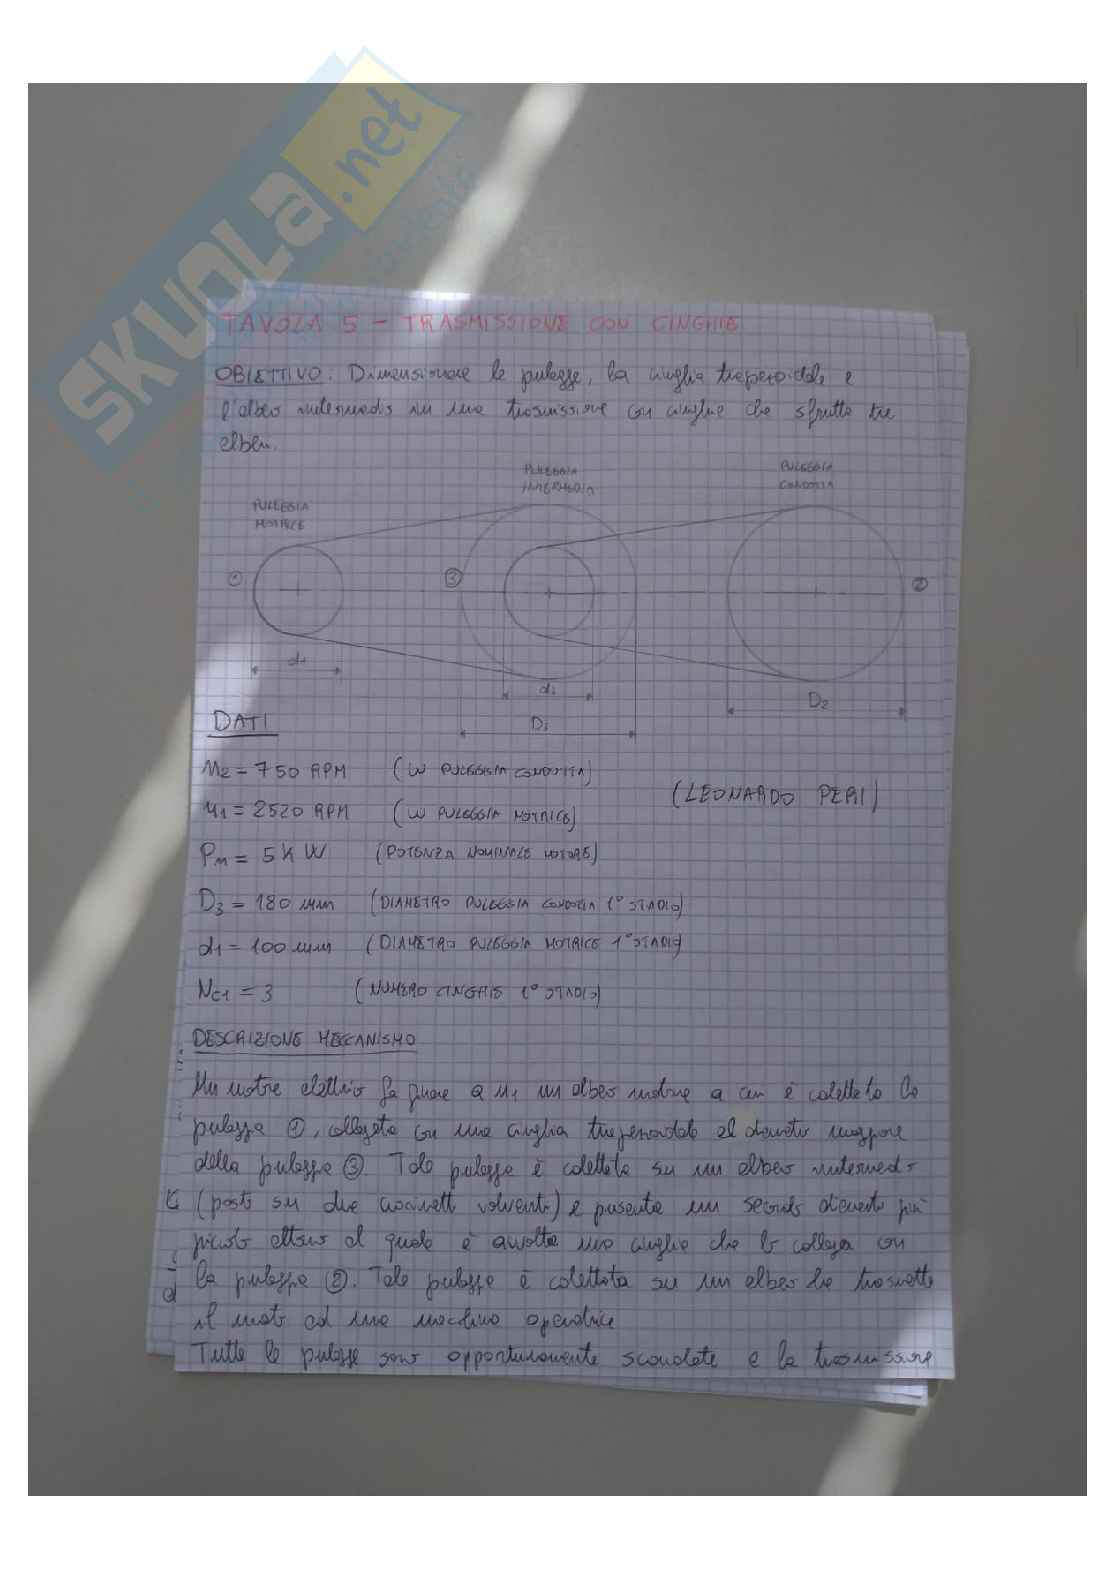 SKUOLA.net
TAVOLA 5 - TRASMISSIONE CON CINGHIE
OBIETTIVO: Dimensionare le pulegge, la cinghia trapezoidale e
l'albero intermedio in una trasmissione con cinghie che sfrutta tre
alberi.
PULEGGIA MOTRICE
PULEGGIA INTERMEDIA
PULEGGIA CONDOTTA
1
3
2
d1
di
Di
D2
DATI
n2 = 750 RPM (ω PULEGGIA CONDOTTA)
(LEONARDO PERI)
n1 = 2520 RPM (ω PULEGGIA MOTRICE)
Pm = 5 kW (POTENZA NOMINALE MOTORE)
D3 = 180 mm (DIAMETRO PULEGGIA CONDOTTA 1° STADIO)
d1 = 100 mm (DIAMETRO PULEGGIA MOTRICE 1° STADIO)
Nc1 = 3 (NUMERO CINGHIE 1° STADIO)
DESCRIZIONE MECCANISMO
Un motore elettrico fa girare a n1 un albero motrice a cui è calettata la
puleggia ①, collegata con una cinghia trapezoidale al diametro maggiore
della puleggia ③. Tale puleggia è calettata su un albero intermedio
(posto su due cuscinetti volventi) e presenta un secondo diametro più
piccolo attorno al quale è avvolta una cinghia che lo collega con
la puleggia ②. Tale puleggia è calettata su un albero che trasmette
il moto ad una macchina operatrice
Tutte le pulegge sono opportunamente scanalate e la trasmissione